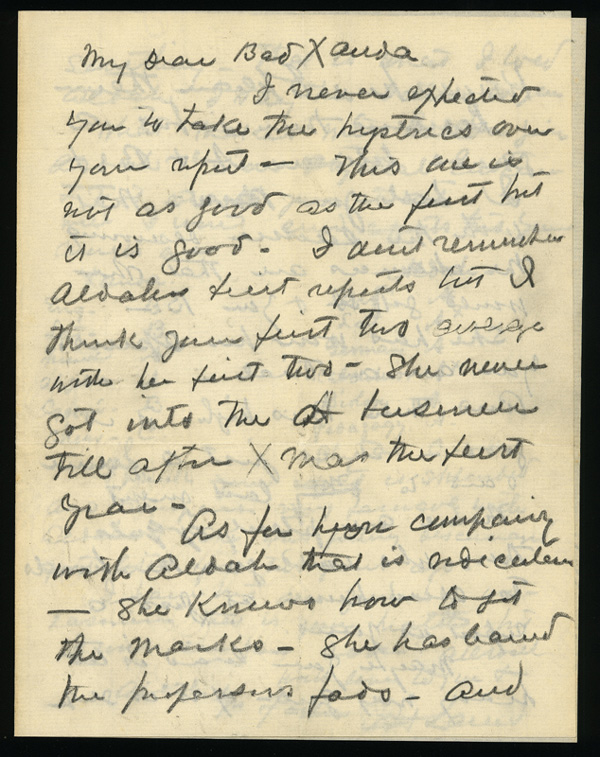 My Dear Bad Xanda
I never expected
you to take the hysterics over
your report — This one is
not as good as the first but
it is good - I dont remember
Aldahs first reports but I
think your first two average
with her first two - She never
got into the A business
till after Xmas the first
year -
As for your comparing
with Aldah that is ridiculous
— She Knows how to get
the marks - She has learned
the professors fads - and